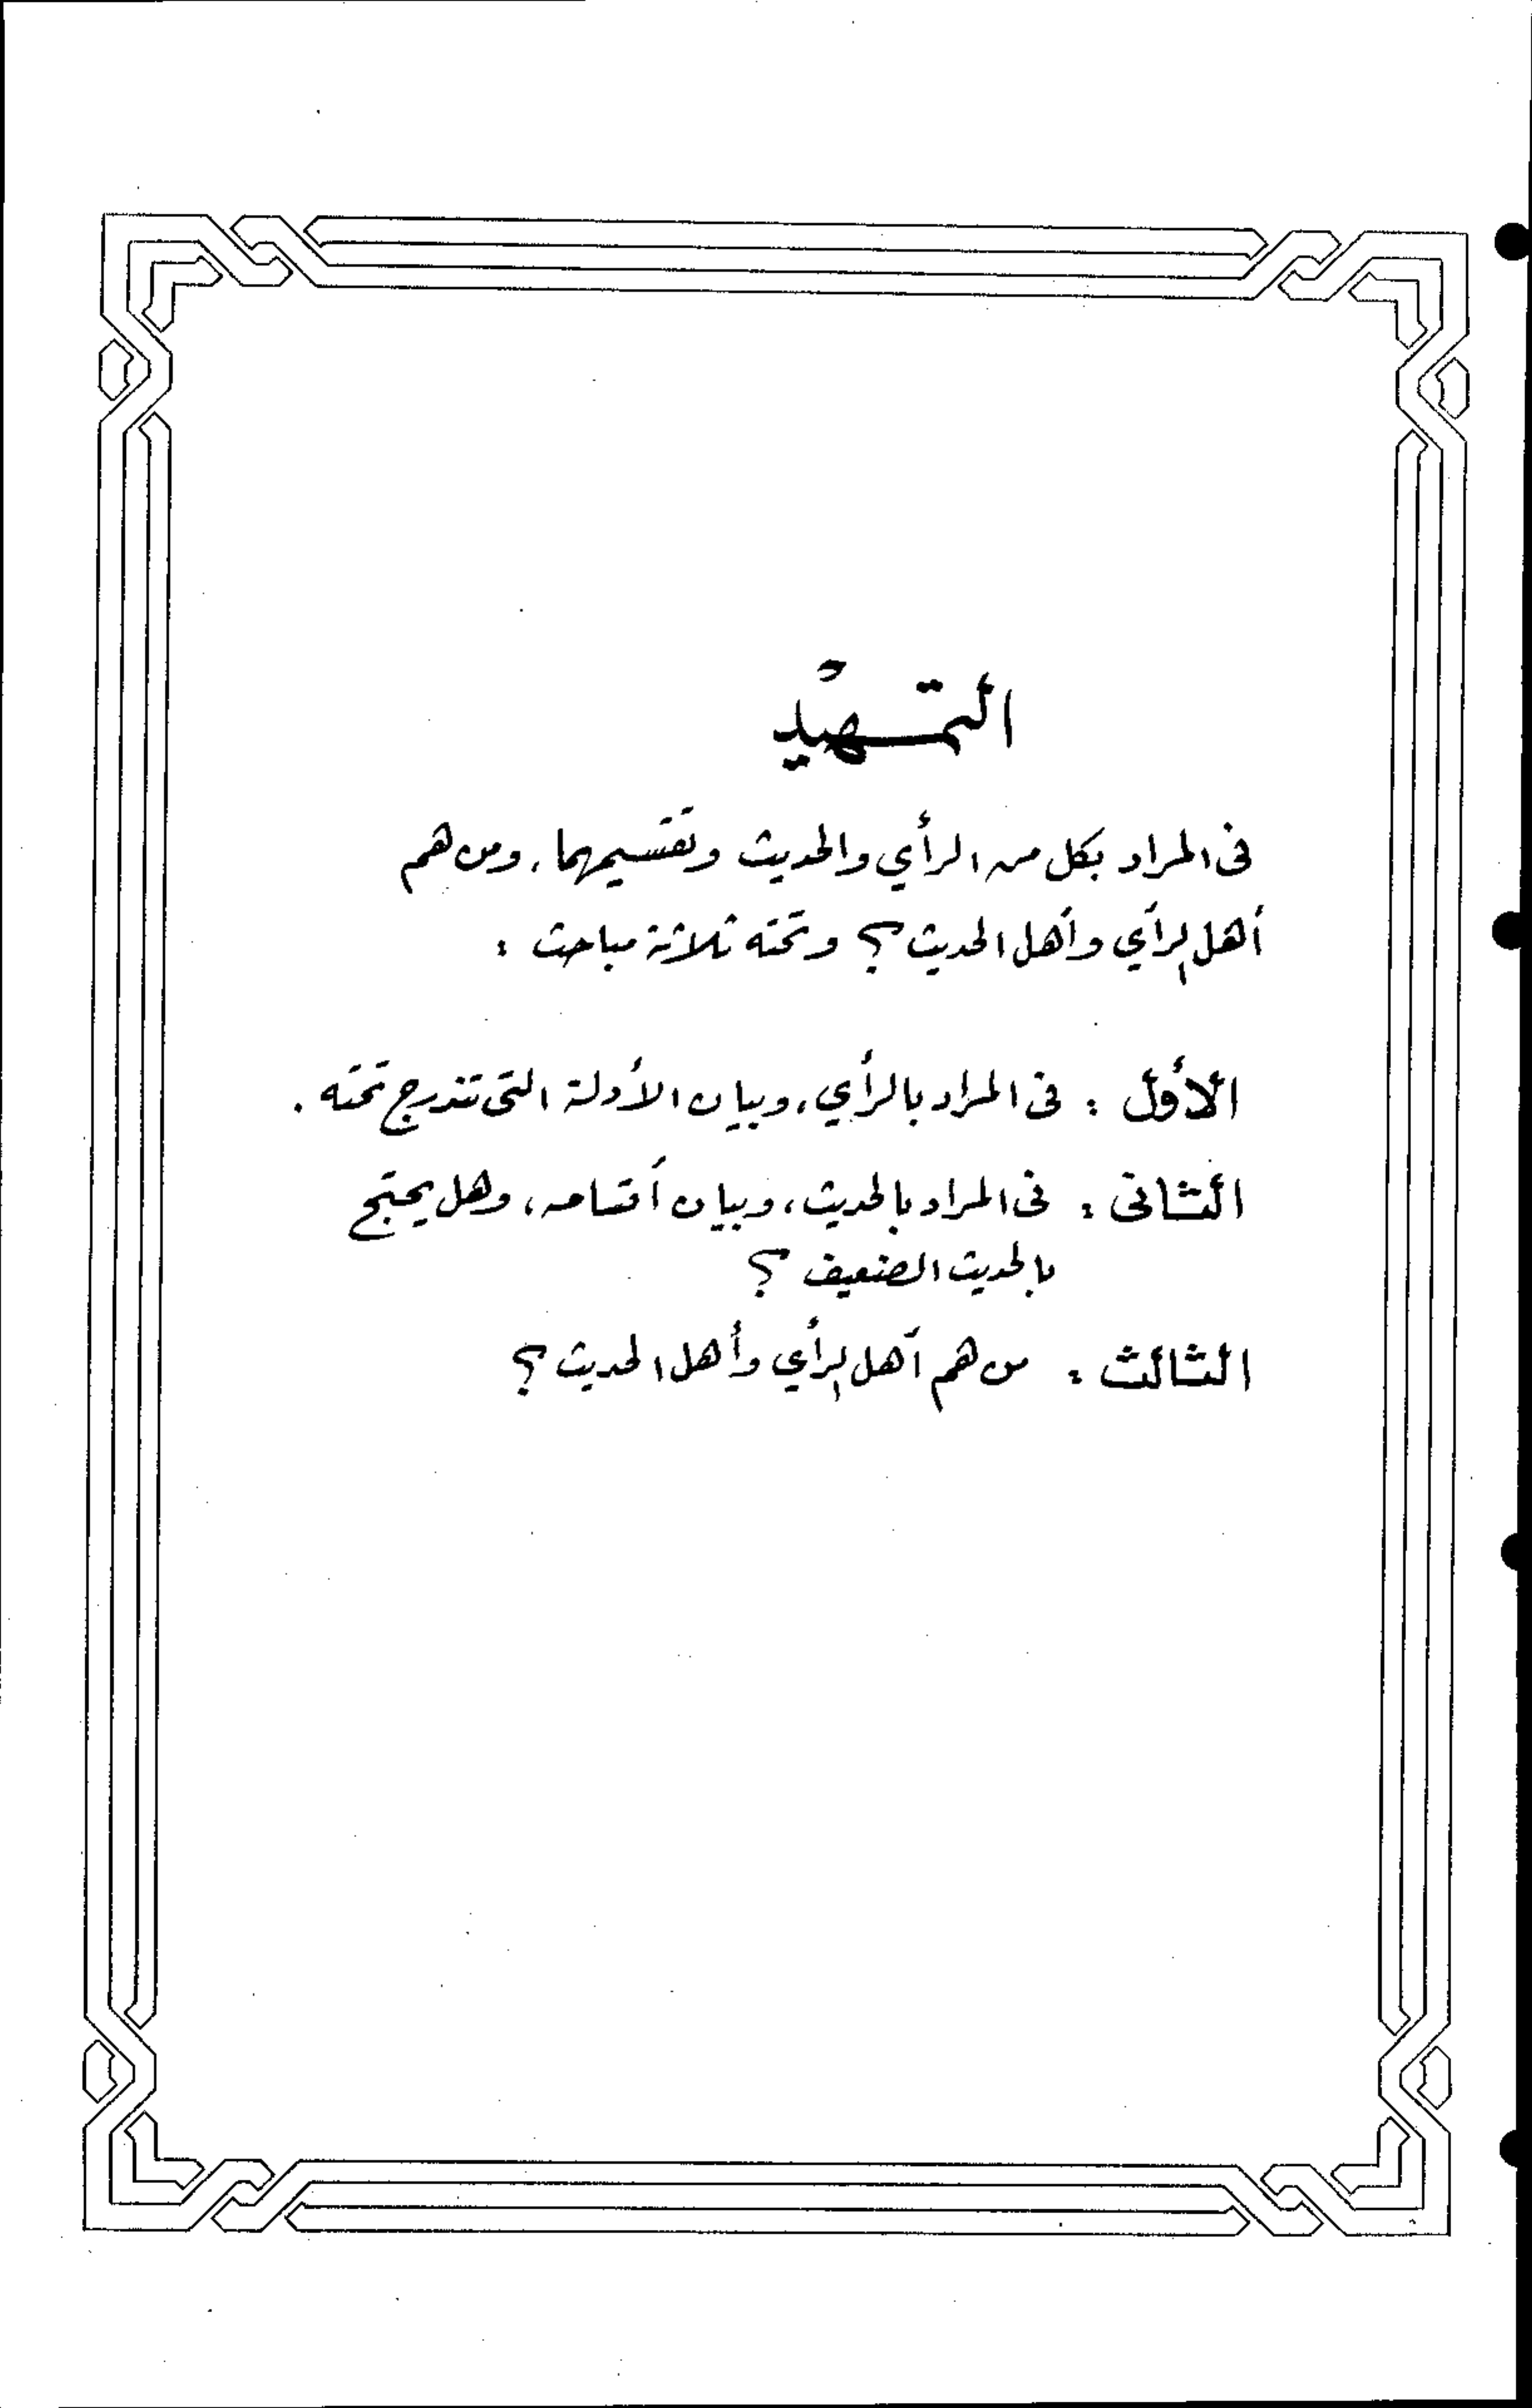 التمهيد
فى المراد بكل من الرأي والحديث وتقسيمهما، ومن هم
أهل الرأي وأهل الحديث؟ وتحته ثلاثة مباحث :
الأول : فى المراد بالرأي، وبيان الأدلة التى تندرج تحته .
الثانى : فى المراد بالحديث، وبيان أقسامه، وهل يحتج
بالحديث الضعيف ؟
الثالث : من هم أهل الرأي وأهل الحديث ؟